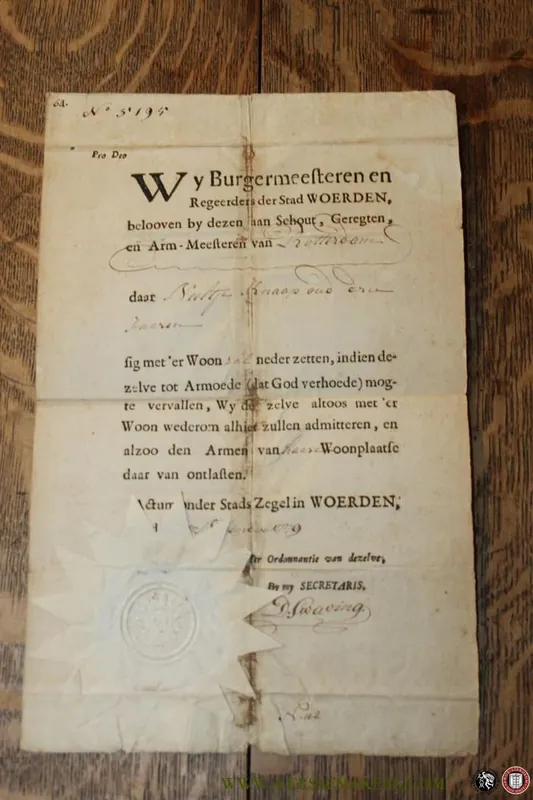 64.
No 5194
Pro Deo
Wy Burgermeesteren en
Regeerders der Stad WOERDEN,
belooven by dezen aan Schout, Geregten,
en Arm-Meesteren van Rotterdam
daar Neeltje Knaap oud drie
jaaren
sig met'er Woon zal neder zetten, indien de-
zelve tot Armoede (dat God verhoede) mog-
te vervallen, Wy de zelve altoos met'er
Woon wederom alhier zullen admitteren, en
alzoo den Armen van haare Woonplaatse
daar van ontlasten.
Actum onder Stads Zegel in WOERDEN,
Ter Ordonnantie van dezelve,
By my SECRETARIS.
D. Swaving